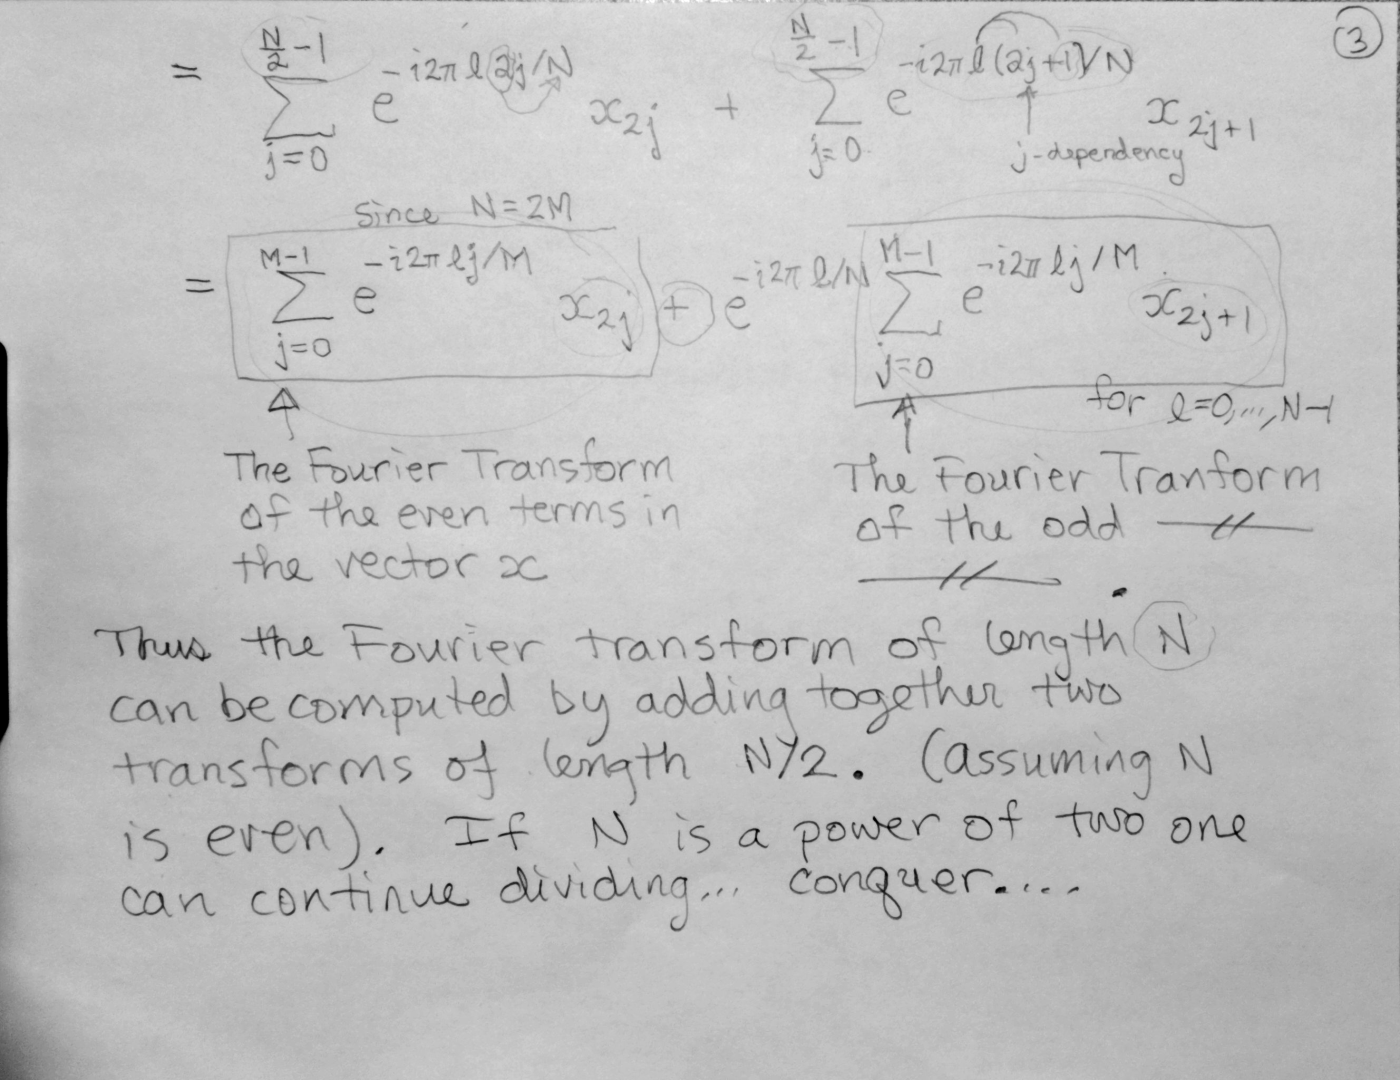 ③
= ∑_{j=0}^{N/2 -1} e^{-i2πl2j/N} x_{2j} + ∑_{j=0}^{N/2 -1} e^{-i2πl(2j+1)/N} x_{2j+1}
j-dependency
since N=2M
= ∑_{j=0}^{M-1} e^{-i2πlj/M} x_{2j} + e^{-i2πl/N} ∑_{j=0}^{M-1} e^{-i2πlj/M} x_{2j+1}
for l=0,...,N-1
The Fourier Transform
of the even terms in
the vector x
The Fourier Tranform
of the odd —//—
—//—
Thus the Fourier transform of length N
can be computed by adding together two
transforms of length N/2. (assuming N
is even). If N is a power of two one
can continue dividing... conquer....